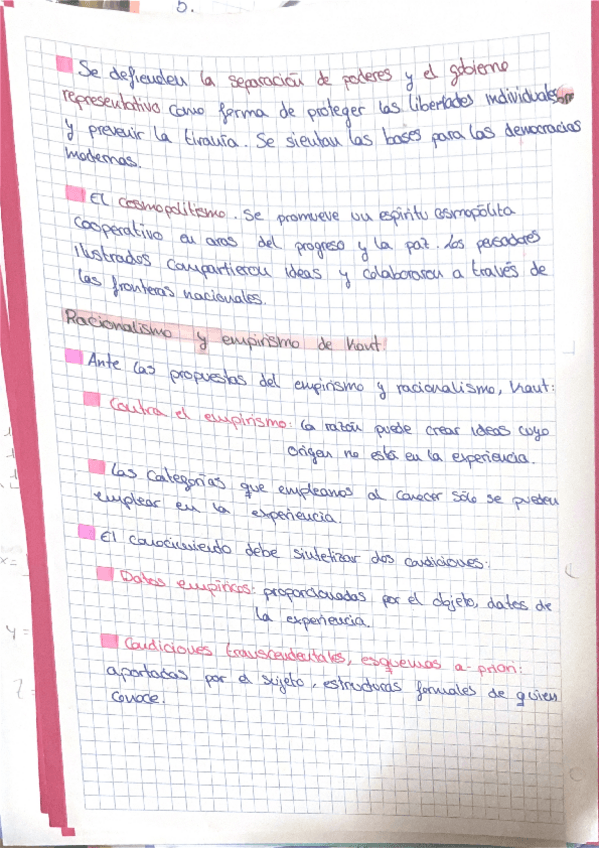 5.
Se defienden la separación de poderes y el gobierno
representativo como forma de proteger las libertades individuales
y prevenir la tiranía. Se sientan las bases para las democracias
modernas.
El cosmopolitismo. Se promueve un espíritu cosmopólita
cooperativo en aras del progreso y la paz. Los pensadores
ilustrados compartieron ideas y colaboraron a través de
las fronteras nacionales.
Racionalismo y empirismo de Kant.
Ante las propuestas del empirismo y racionalismo, Kant:
Contra el empirismo: la razón puede crear ideas cuyo
origen no está en la experiencia.
Las categorías que empleamos al conocer sólo se pueden
emplear en la experiencia.
El conocimiento debe sintetizar dos condiciones:
Datos empíricos: proporcionadas por el objeto, dates de
la experiencia.
Condiciones transcendentales, esquemas a-priori:
aportadas por el sujeto, estructuras formales de quien
conoce.
x=
y=